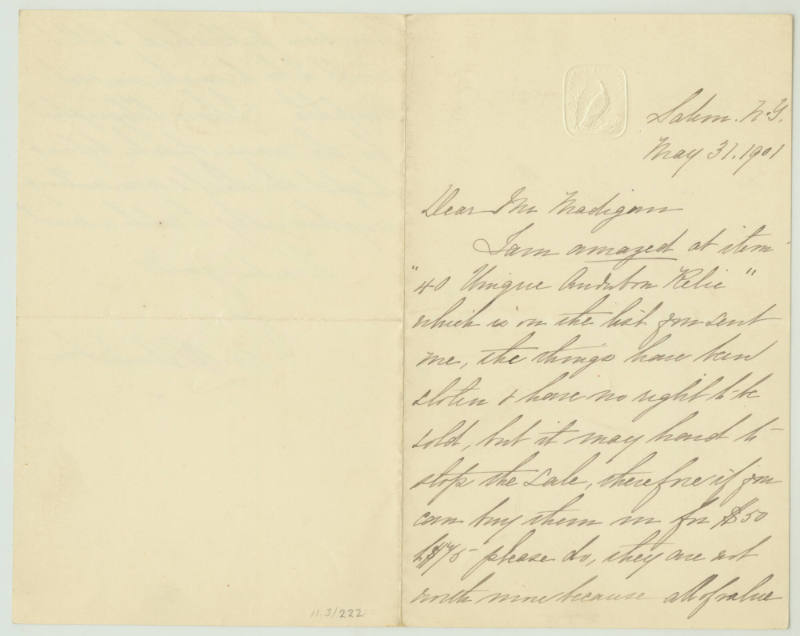 Salem. N.Y.
May 31. 1901
Dear Mr Madigan
I am amazed at item
"40 Unique Audubon Relic"
which is on the list you sent
me, the things have been
stolen & have no right to be
sold, but it may hard to
stop the sale, therefore if you
can buy them in for $50
to $75 please do, they are not
worth more because all of value
11.3/222